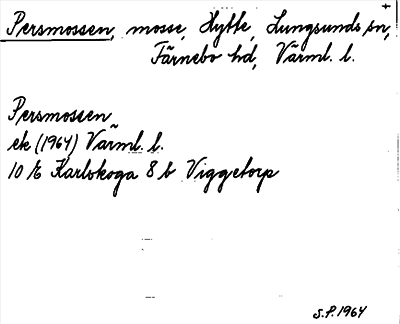 Persmossen, mosse, Hytte, Lungsunds sn,
Färnebo hd, Värml. l.
Persmossen
ek (1964) Värml. l.
10 E Karlskoga 8 b Viggetorp
S.P. 1964